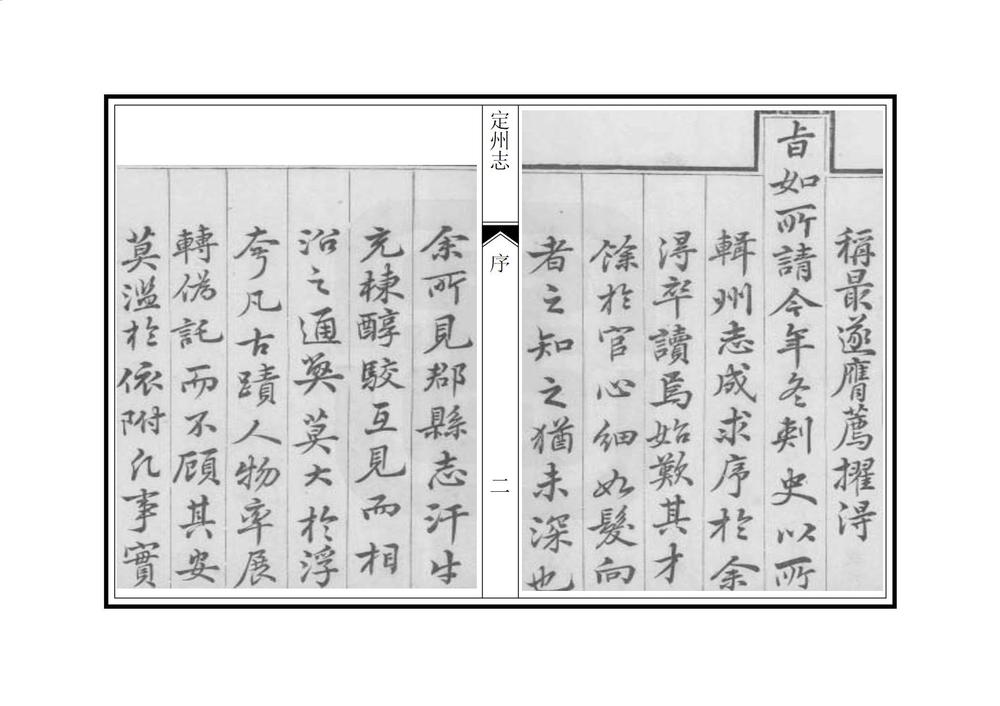 稱最遂膺薦擢得
旨如所請今年冬刺史以所
輯州志成求序於余
得卒讀焉始歎其才
餘於官心細如髮向
者之知之猶未深也
定州志
序
二
余所見郡縣志汗牛
充棟醇駁互見而相
沿之通獘莫大於浮
夸凡古蹟人物率展
轉偽託而不顧其安
莫濫於依附凡事實